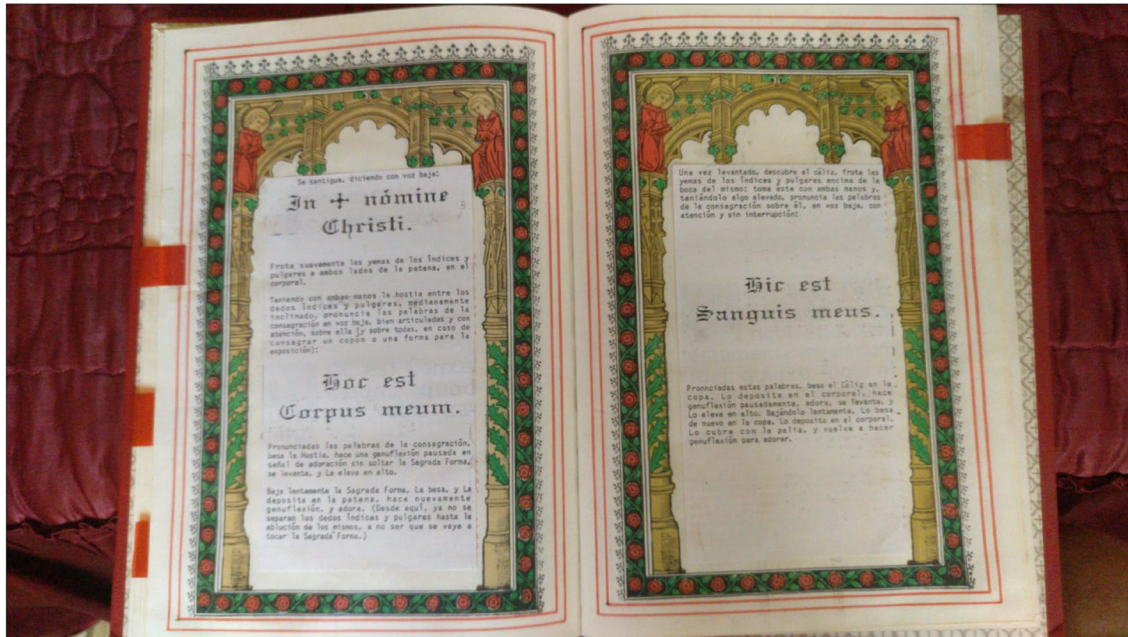 Se santigua, diciendo con voz baja:
In ✢ nómine
Christi.
Frota suavemente las yemas de los índices y
pulgares a ambos lados de la patena, en el
corporal.
Teniendo con ambas manos la hostia entre los
dedos índices y pulgares, medianamente
inclinado, pronuncia las palabras de la
consagración en voz baja, bien articuladas y con
atención, sobre ella (y sobre todas, en caso de
consagrar un copón o una forma para la
exposición):
Hoc est
Corpus meum.
Pronunciadas las palabras de la consagración,
besa la Hostia, hace una genuflexión pausada en
señal de adoración sin soltar la Sagrada Forma,
se levanta, y La eleva en alto.
Baja lentamente la Sagrada Forma, La besa, y La
deposita en la patena, hace nuevamente
genuflexión, y adora. (Desde aquí, ya no se
separan los dedos índices y pulgares hasta la
ablución de los mismos, a no ser que se vaya a
tocar la Sagrada Forma.)
Una vez levantado, descubre el cáliz, frota las
yemas de los índices y pulgares encima de la
boca del mismo; toma este con ambas manos y,
teniéndolo algo elevado, pronuncia las palabras
de la consagración sobre él, en voz baja, con
atención y sin interrupción:
Hic est
Sanguis meus.
Pronnciadas estas palabras, besa el Cáliz en la
copa, Lo deposita en el corporal, hace
genuflexión pausadamente, adora, se levanta, y
Lo eleva en alto. Bajándolo lentamente, Lo besa
de nuevo en la copa, Lo deposita en el corporal,
Lo cubre con la palia, y vuelve a hacer
genuflexión para adorar.